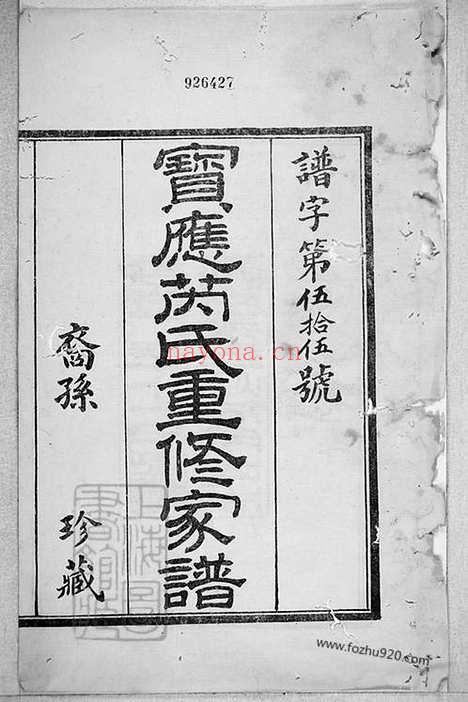 926427
譜字第伍拾伍號
寶應芮氏重修家譜
裔孫 珍藏
nayona.cn
www.fozhu920.com